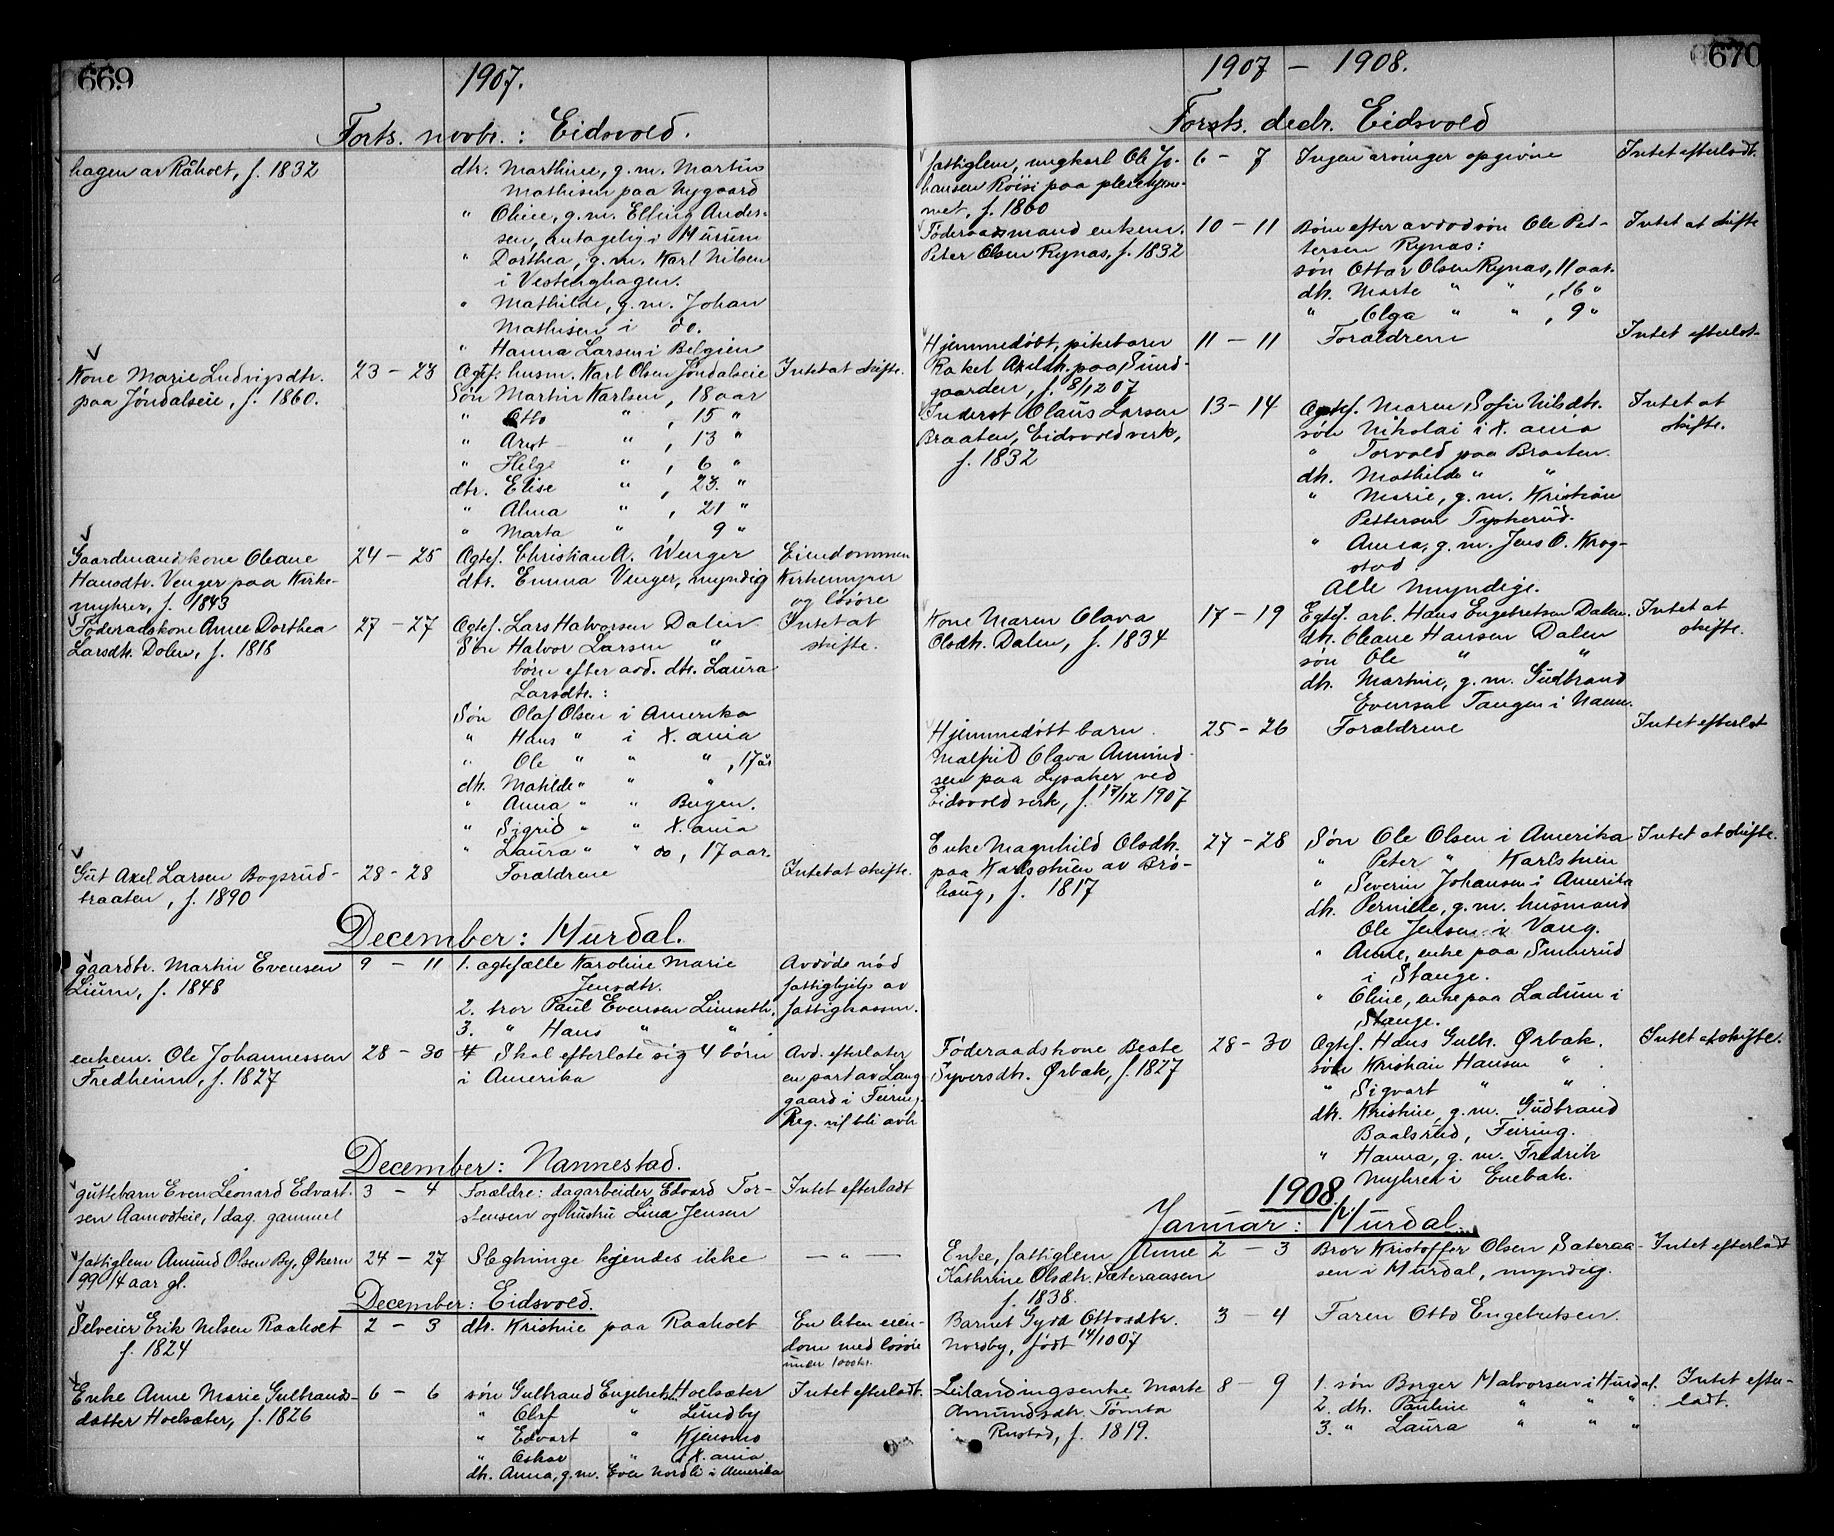 669
1907.
Forts. novbr.: Eidsvold.
hagen av Råholt, f. 1832
dtr. Marthine, g. m. Martin
Mathisen paa Nygaard
" Oline, g. m. Elling Ander-
sen, antagelig i Hurum
" Dorthea, g. m. Karl Nilsen
i Vestenghagen.
" Mathilde, g. m. Johan
Mathisen i do.
" Hanna Larsen i Belgien
Kone Marie Ludvigsdtr.
paa Jøndalseie, f. 1860.
23 - 23
Ægtef. husm. Karl Olsen Jøndalseie
Søn Martin Karlsen, 18 aar
" Otto " , 15 "
" Arnt " , 13 "
" Helge " , 6 "
dtr. Elise " , 23. "
" Alma " , 21 "
" Marta " 9 "
Intet at skifte.
Gaardmandskone Oleane
Hansdtr. Venger paa Kirke-
myhrer, f. 1843
24 - 25
Ægtef. Christian A. Wenger
dtr. Emma Venger, myndig
Eiendommen
Kirkemyrer
og løsøre
Føderaadskone Anne Dorthea
Larsdtr. Dalen, f. 1818
27 - 27
Ægtef. Lars Halvorsen Dalen
Søn Halvor Larsen "
børn efter avd. dtr. Laura
Larsdtr.:
Søn Olaf Olsen i Amerika
" Hans " i X.ania
" Ole " " " , 17 år
dtr. Matilde " " "
" Anna " " Bergen.
" Sigrid " " X.ania
" Laura " " do, 17 aar.
Intet at
skifte.
Gut Axel Larsen Bogsrud-
braaten, f. 1890
28 - 28
Forældrene
Intet at skifte.
December: Hurdal.
gaardbr. Martin Evensen
Lium, f. 1848
9 - 11
1. ægtefælle Karoline Marie
Jensdtr.
2. bror Paul Evensen Liumseth,
3. " Hans " "
Avdøde nød
fattighjelp av
fattigkassen.
enkem. Ole Johannessen
Fredheim, f. 1827
28 - 30
Skal efterlate sig 4 børn
i Amerika
Avd. efterlater
en part av Lang
gaard i Feiring.
Reg. vil bli avh
December: Nannestad.
guttebarn Even Leonard Edvart-
sen Aamodteie, 1 dag gammel
3 - 4
Forældre: dagarbeider Edvard Tor-
stensen og hustru Lina Jensen
Intet efterladt
fattiglem Amund Olsen By, Økern
99 1/4 aar gl.
24 - 27
Slegtninge kjendes ikke
— " —
December: Eidsvold.
Selveier Erik Nilsen Raaholt
f. 1824
2 - 3
dtr. Kristine paa Raaholt
En liten eien-
dom med løsøre
under 1000 kr.
Enke Anne Marie Gulbrands-
datter Hoelsæter, f. 1826
6 - 6
søn Gulbrand Engebrets. Hoelsæter
" Olaf " Lundby
" Edvart " Kjensmo
" Oskar " i X.ania
dtr. Anna, g. m. Even Nordli i Amerika
Intet efterladt.
670
1907 - 1908.
Forts. decbr. Eidsvold
fattiglem, ungkarl Ole Jo-
hansen Röisi paa pleiehjem-
met, f. 1860
6 - 7
Ingen arvinger opgivne
Intet efterladt.
Føderaadsmand enkem.
Peter Olsen Rynas, f. 1832
10 - 11
Børn efter avdød søn Ole Pet-
tersen Rynas:
søn Ottar Olsen Rynas, 11 aar.
dtr. Marte " " , 16 "
" Olga " " , 9 "
Intet at skifte
Hjemmedøbt, pikebarn
Rakel Axeldtr. paa Sund-
gaarden, f. 8/12 07
11 - 11
Forældrene
Intet efterlat-
Inderst Claus Larsen
Braaten, Eidsvold verk,
f. 1832
13 - 14
Ægtef. Maren Sofie Nilsdtr.
søn Nikolai i X.ania
" Torvald paa Braaten.
dtr. Mathilde " "
" Marie, g. m. Kristian
Pettersen Tyskerud.
" Anna, g. m. Jens O. Krog-
stad.
Alle myndige.
Intet at
skifte.
Kone Maren Olava
Olsdtr. Dalen, f. 1834
17 - 19
Egtef. arb. Hans Engebretsen Dalen.
dtr. Oleane Hansen Dalen
søn Ole " "
dtr. Martine, g. m. Gudbrand
Evensen Tangen i Nann.
Intet at
skifte.
Hjemmedøbt barn
Malfrid Olava Amund-
sen paa Lysaker ved
Eidsvold verk, f. 17/12 1907
25 - 26
Forældrene
Intet efterlat
Enke Magnhild Olsdtr.
paa Karlsstuen av Brø-
haug, f. 1817
27 - 28
Søn Ole Olsen i Amerika
" Peter " Karlstuen
" Severin Johansen i Amerika
dtr. Pernille, g. m. husmand
Ole Jensen i Vang.
" Anne, enke paa
i Stange.
" Oline, enke paa Ladum i
Stange.
Intet at skifte.
Føderaadskone Beate
Syversdtr. Ørbæk, f. 1827
28 - 30
Ægtef. Hans Gulbr. Ørbæk.
søn Kristian Hansen "
" Sigvart " "
dtr. Kristine, g. m. Gudbrand
Baalsrud, Feiring.
" Hanna, g. m. Fredrik
Myhren i Enebak.
Intet at skifte.
1908.
Januar: Hurdal.
Enke, fattiglem Anne
Kathrine Olsdtr. Sæteraasen
f. 1838.
2 - 3
Bror Kristoffer Olsen Sæteraa-
sen i Hurdal, myndig.
Intet efterladt
Barnet Gyda Ottosdtr.
Nordby, født 14/10 07
3 - 4
Faren Otto Engebretsen.
Leilændingsenke Marte
Amundsdtr. Tømta
Rustad, f. 1819.
8 - 9
1. søn Borger Halvorsen i Hurdal.
2. dtr. Pauline " " "
3. " Laura " " "
Intet efter-
ladt.